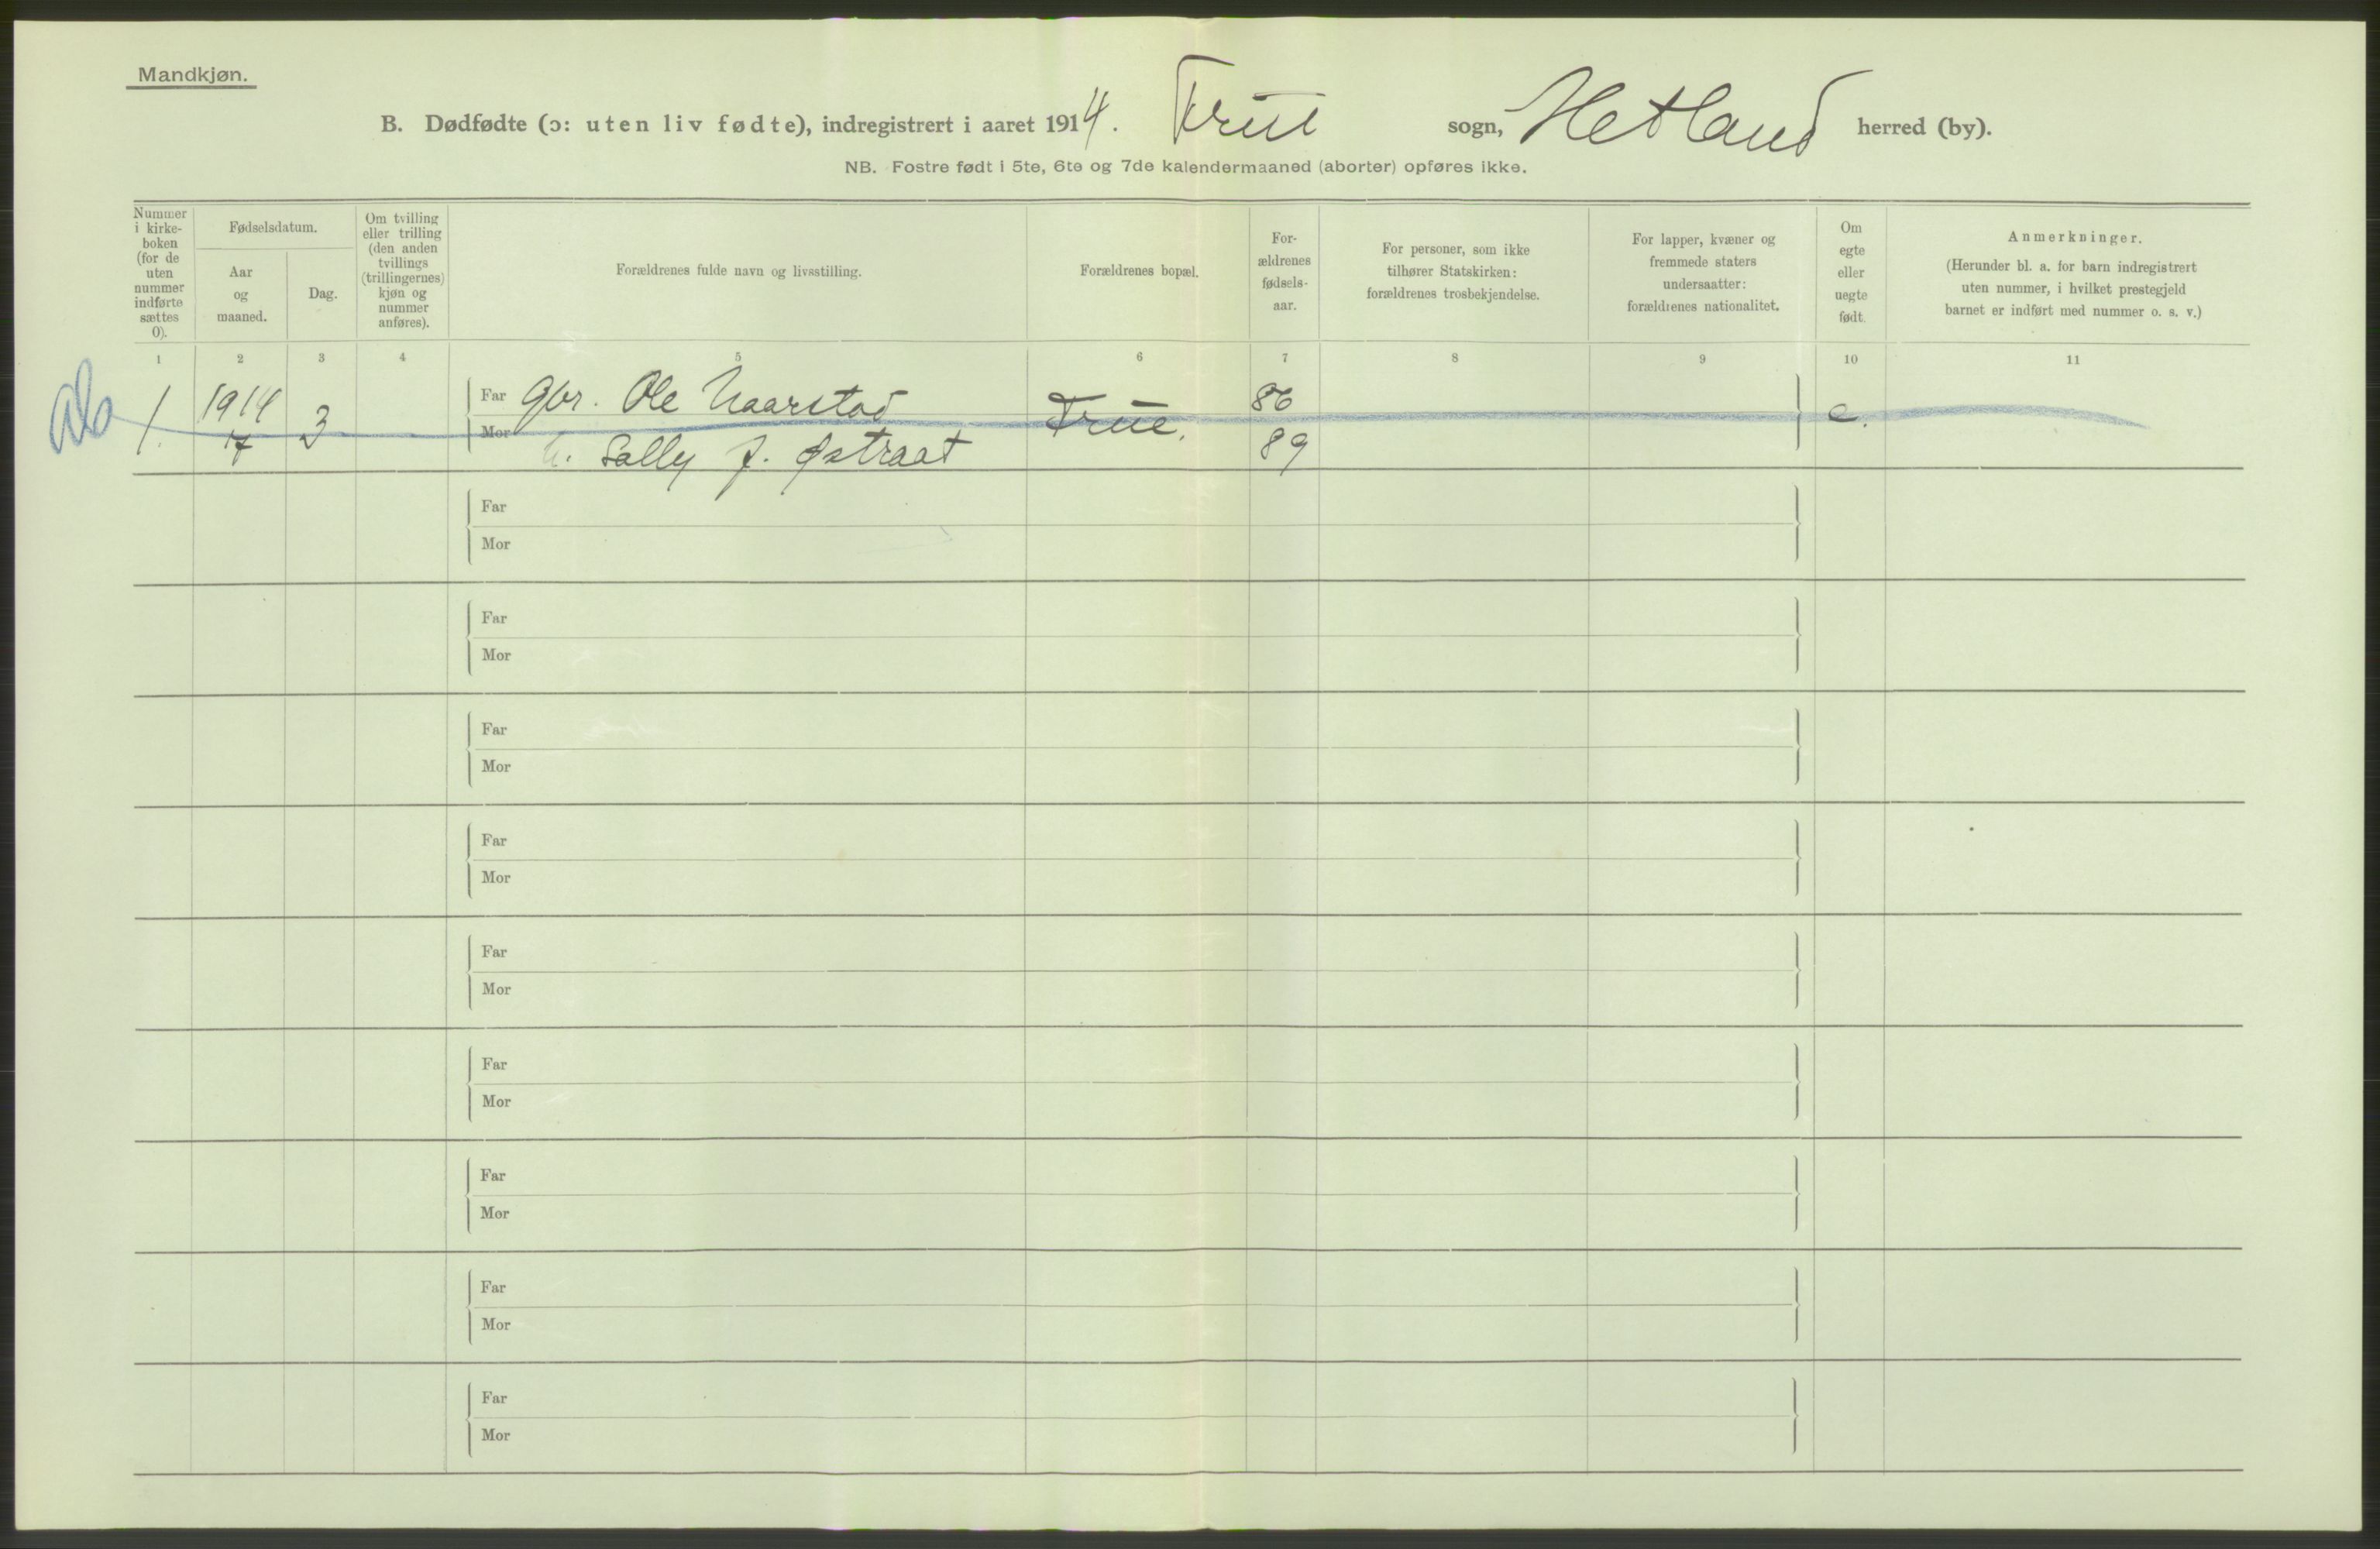 Mandkjøn.
B. Dødfødte (ɔ: uten liv fødte), indregistrert i aaret 1914. Frue sogn, Hetland herred (by).
NB. Fostre født i 5te, 6te og 7de kalendermaaned (aborter) opføres ikke.
Nummer
i kirke-
boken
(for de
uten
nummer
indførte
sættes
0).
Fødselsdatum.
Aar
og
maaned.
Dag.
Om tvilling
eller trilling
(den anden
tvillings
(trillingernes)
kjøn og
nummer
anføres).
Forældrenes fulde navn og livsstilling.
Forældrenes bopæl.
For-
ældrenes
fødsels-
aar.
For personer, som ikke
tilhører Statskirken:
forældrenes trosbekjendelse.
For lapper, kvæner og
fremmede staters
undersaatter:
forældrenes nationalitet.
Om
egte
eller
uegte
født.
Anmerkninger.
(Herunder bl. a. for barn indregistrert
uten nummer, i hvilket prestegjeld
barnet er indført med nummer o. s. v.)
1 2 3 4 5 6 7 8 9 10 11
1. 1914 3 Far Gbr. Ole Haarstad Frue. 86 e.
Mor Sally J. Østraat 89
Far
Mor
Far
Mor
Far
Mor
Far
Mor
Far
Mor
Far
Mor
Far
Mor
Far
Mor
Far
Mor